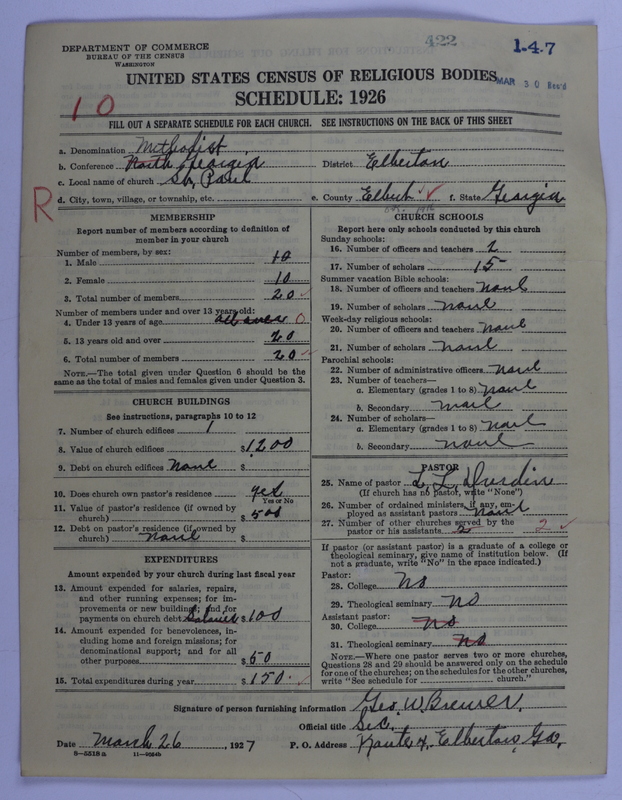 DEPARTMENT OF COMMERCE
BUREAU OF THE CENSUS
WASHINGTON
422
1-4-7
MAR 30 Rec'd
UNITED STATES CENSUS OF RELIGIOUS BODIES
SCHEDULE: 1926
10
FILL OUT A SEPARATE SCHEDULE FOR EACH CHURCH. SEE INSTRUCTIONS ON THE BACK OF THIS SHEET
a. Denomination Methodist
b. Conference North Georgia District Elberton
c. Local name of church St. Paul
R
d. City, town, village, or township, etc. e. County Elbert f. State Georgia
MEMBERSHIP
Report number of members according to definition of
member in your church
Number of members, by sex:
1. Male 10
2. Female 10
3. Total number of members 20
Number of members under and over 13 years old:
4. Under 13 years of age all over 0
5. 13 years old and over 20
6. Total number of members 20
NOTE.—The total given under Question 6 should be the
same as the total of males and females given under Question 3.
CHURCH BUILDINGS
See instructions, paragraphs 10 to 12
7. Number of church edifices 1
8. Value of church edifices $1200
9. Debt on church edifices Nonl $
10. Does church own pastor's residence yes
Yes or No
11. Value of pastor's residence (if owned by
church) $500
12. Debt on pastor's residence (if owned by
church) Nonl $
EXPENDITURES
Amount expended by your church during last fiscal year
13. Amount expended for salaries, repairs,
and other running expenses; for im-
provements or new buildings; and for
payments on church debt $100
14. Amount expended for benevolences, in-
cluding home and foreign missions; for
denominational support; and for all
other purposes $50
15. Total expenditures during year $150
CHURCH SCHOOLS
Report here only schools conducted by this church
Sunday schools:
16. Number of officers and teachers 2
17. Number of scholars 15
Summer vacation Bible schools:
18. Number of officers and teachers nonl
19. Number of scholars nonl
Week-day religious schools:
20. Number of officers and teachers nonl
21. Number of scholars nonl
Parochial schools:
22. Number of administrative officers nonl
23. Number of teachers—
a. Elementary (grades 1 to 8) nonl
b. Secondary nonl
24. Number of scholars—
a. Elementary (grades 1 to 8) nonl
b. Secondary nonl
PASTOR
25. Name of pastor L. L. Durdin
(If church has no pastor, write "None")
26. Number of ordained ministers, if any, em-
ployed as assistant pastors nonl
27. Number of other churches served by the
pastor or his assistants 2 2
If pastor (or assistant pastor) is a graduate of a college or
theological seminary, give name of institution below. (If
not a graduate, write "No" in the space indicated.)
Pastor:
28. College No
29. Theological seminary No
Assistant pastor:
30. College No
31. Theological seminary No
NOTE.—Where one pastor serves two or more churches,
Questions 28 and 29 should be answered only on the schedule
for one of the churches; on the schedules for the other churches,
write "See schedule for church."
Signature of person furnishing information Geo. W. Brewer.
Official title Sec.
Date March 26, 1927 P. O. Address Route 4, Elberton, Ga.
8—5518 a 11—9664b